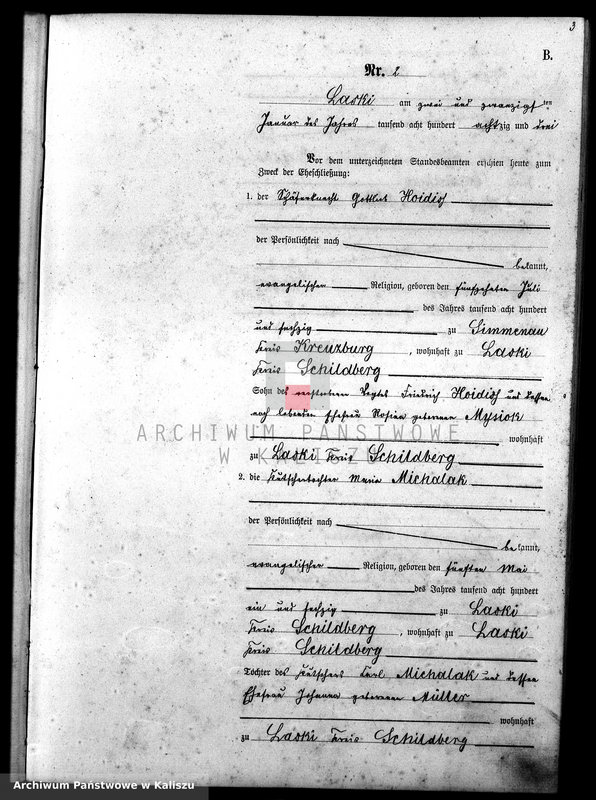 3
B.
Nr. 2
Laski am zwei und zwanzigsten
Januar des Jahres tausend acht hundert achtzig und drei
Vor dem unterzeichneten Standesbeamten erschien heute zum
Zweck der Eheschließung:
1. der Schäferknecht Gottlieb Hoidis
der Persönlichkeit nach
bekannt,
evangelischen Religion, geboren den fünfzehnten Juli
des Jahres tausend acht hundert
und sechzig zu Simmenau
Kreis Kreuzburg, wohnhaft zu Laski
Kreis Schildberg
Sohn des verstorbenen Friedrich Hoidis und dessen
noch lebenden Ehefrau Rosina geborenen Mysiok
wohnhaft
zu Laski Kreis Schildberg
2. die Kutschertochter Maria Michalak
der Persönlichkeit nach
bekannt,
evangelischen Religion, geboren den fünften Mai
des Jahres tausend acht hundert
ein und sechzig zu Laski
Kreis Schildberg, wohnhaft zu Laski
Kreis Schildberg
Tochter des Kutschers Carl Michalak und dessen
Ehefrau Johanna geborenen Müller
wohnhaft
zu Laski Kreis Schildberg
ARCHIWUM PAŃSTWOWE
W KALISZU
Archiwum Państwowe w Kaliszu